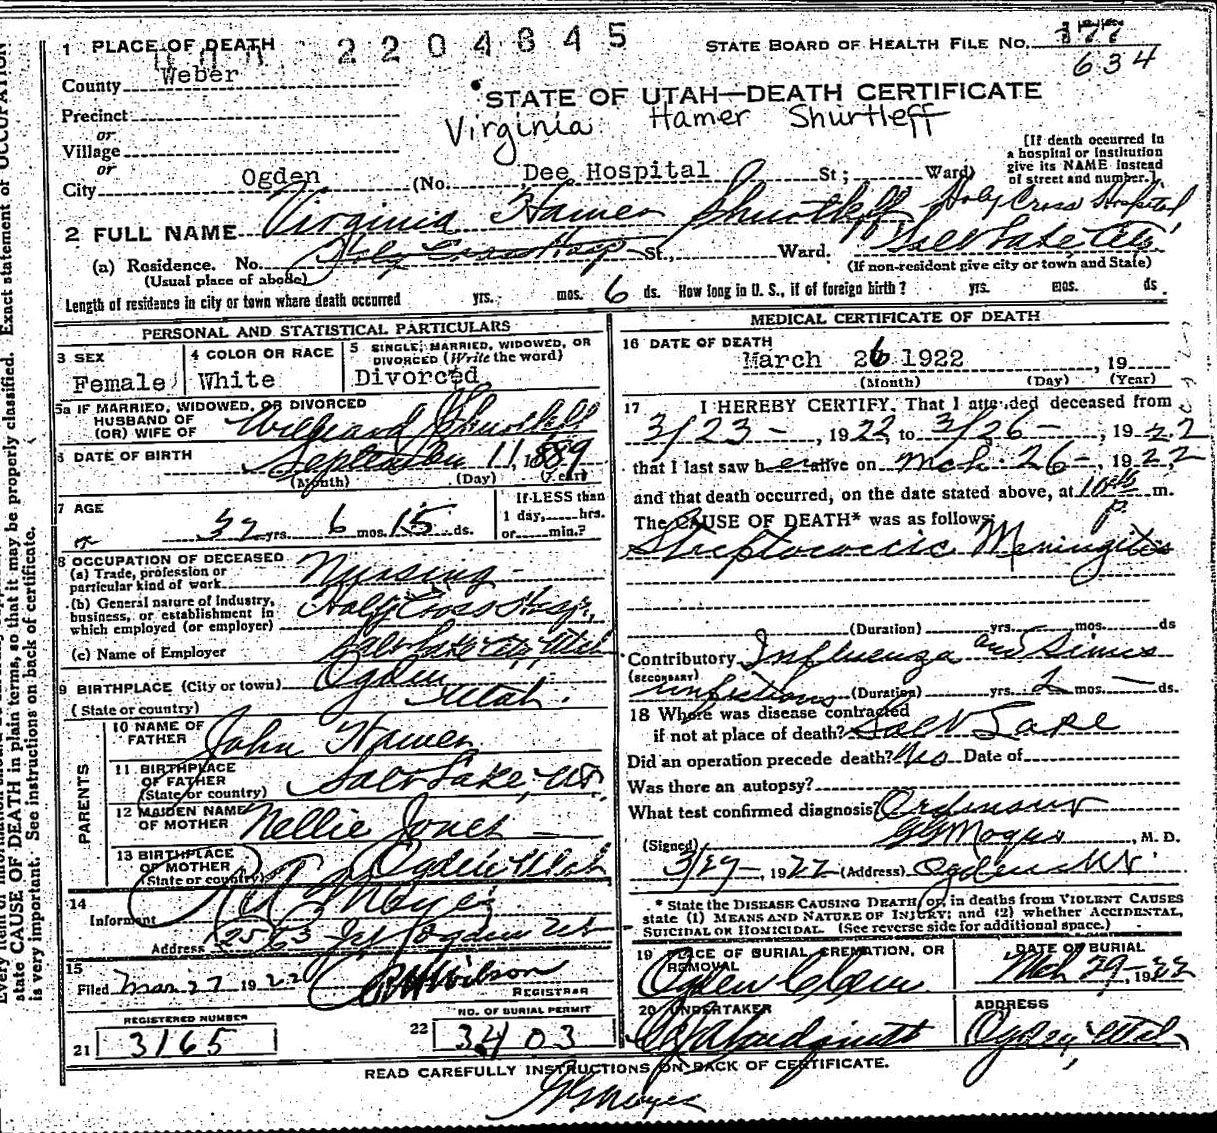 1 PLACE OF DEATH
2204645
STATE BOARD OF HEALTH FILE NO. 177
634
County Weber
STATE OF UTAH—DEATH CERTIFICATE
Virginia Hamer Shurtleff
Precinct
or
Village
or
City Ogden (No. Dee Hospital St; Ward)
[If death occurred in
a hospital or institution
give its NAME instead
of street and number.]
Holy Cross Hospital
2 FULL NAME Virginia Hamer Shurtleff
Salt Lake City
(a) Residence. No. Holy Cross Hosp St., Ward.
(Usual place of abode)
(If non-resident give city or town and State)
Length of residence in city or town where death occurred yrs. mos. 6 ds. How long in U. S., if of foreign birth? yrs. mos. ds.
PERSONAL AND STATISTICAL PARTICULARS
3 SEX
Female
4 COLOR OR RACE
White
5 SINGLE, MARRIED, WIDOWED, OR
DIVORCED (Write the word)
Divorced
5a IF MARRIED, WIDOWED, OR DIVORCED
HUSBAND OF
(OR) WIFE OF Willard Shurtleff
6 DATE OF BIRTH September 11, 1889
(Month) (Day) (Year)
7 AGE
or
32 yrs. 6 mos. 15 ds.
If LESS than
1 day, hrs.
or min.?
8 OCCUPATION OF DECEASED
(a) Trade, profession or
particular kind of work Nursing
(b) General nature of industry,
business, or establishment in
which employed (or employer) Holy Cross Hosp.,
(c) Name of Employer Salt Lake City, Utah
9 BIRTHPLACE (City or town) Ogden
(State or country) Utah.
PARENTS
10 NAME OF
FATHER John Hamer
11 BIRTHPLACE
OF FATHER
(State or country) Salt Lake, Ut.
12 MAIDEN NAME
OF MOTHER Nellie Jones
13 BIRTHPLACE
OF MOTHER
(State or country) Ogden Utah
14
Informant
Address 2563 Ogden Ut
15
Filed Mar 27 1922 Wilson
REGISTRAR
REGISTERED NUMBER
21 3165
NO. OF BURIAL PERMIT
22 3403
MEDICAL CERTIFICATE OF DEATH
16 DATE OF DEATH
March 26 1922, 19
(Month) (Day) (Year)
17 I HEREBY CERTIFY, That I attended deceased from
3/23, 1922, to 3/26, 1922
that I last saw her alive on Mch. 26, 1922
and that death occurred, on the date stated above, at 10 P m.
The CAUSE OF DEATH* was as follows:
Streptococcic Meningitis
(Duration) yrs. mos. ds
Contributory Influenza and Sinus
(SECONDARY)
infections (Duration) yrs. 2 mos. ds.
18 Where was disease contracted
if not at place of death? Salt Lake
Did an operation precede death? No Date of
Was there an autopsy?
What test confirmed diagnosis?
(Signed) M. D.
3/27, 1922 (Address) Ogden Ut.
* State the DISEASE CAUSING DEATH, or, in deaths from VIOLENT CAUSES
state (1) MEANS AND NATURE OF INJURY; and (2) whether ACCIDENTAL,
SUICIDAL OR HOMICIDAL. (See reverse side for additional space.)
19 PLACE OF BURIAL, CREMATION, OR
REMOVAL
Ogden
DATE OF BURIAL
Mch 29, 1922
20 UNDERTAKER
ADDRESS
Ogden, Utah
READ CAREFULLY INSTRUCTIONS ON BACK OF CERTIFICATE.
state CAUSE OF DEATH in plain terms, so that it may be properly classified. Exact statement of OCCUPATION
is very important. See instructions on back of certificate.